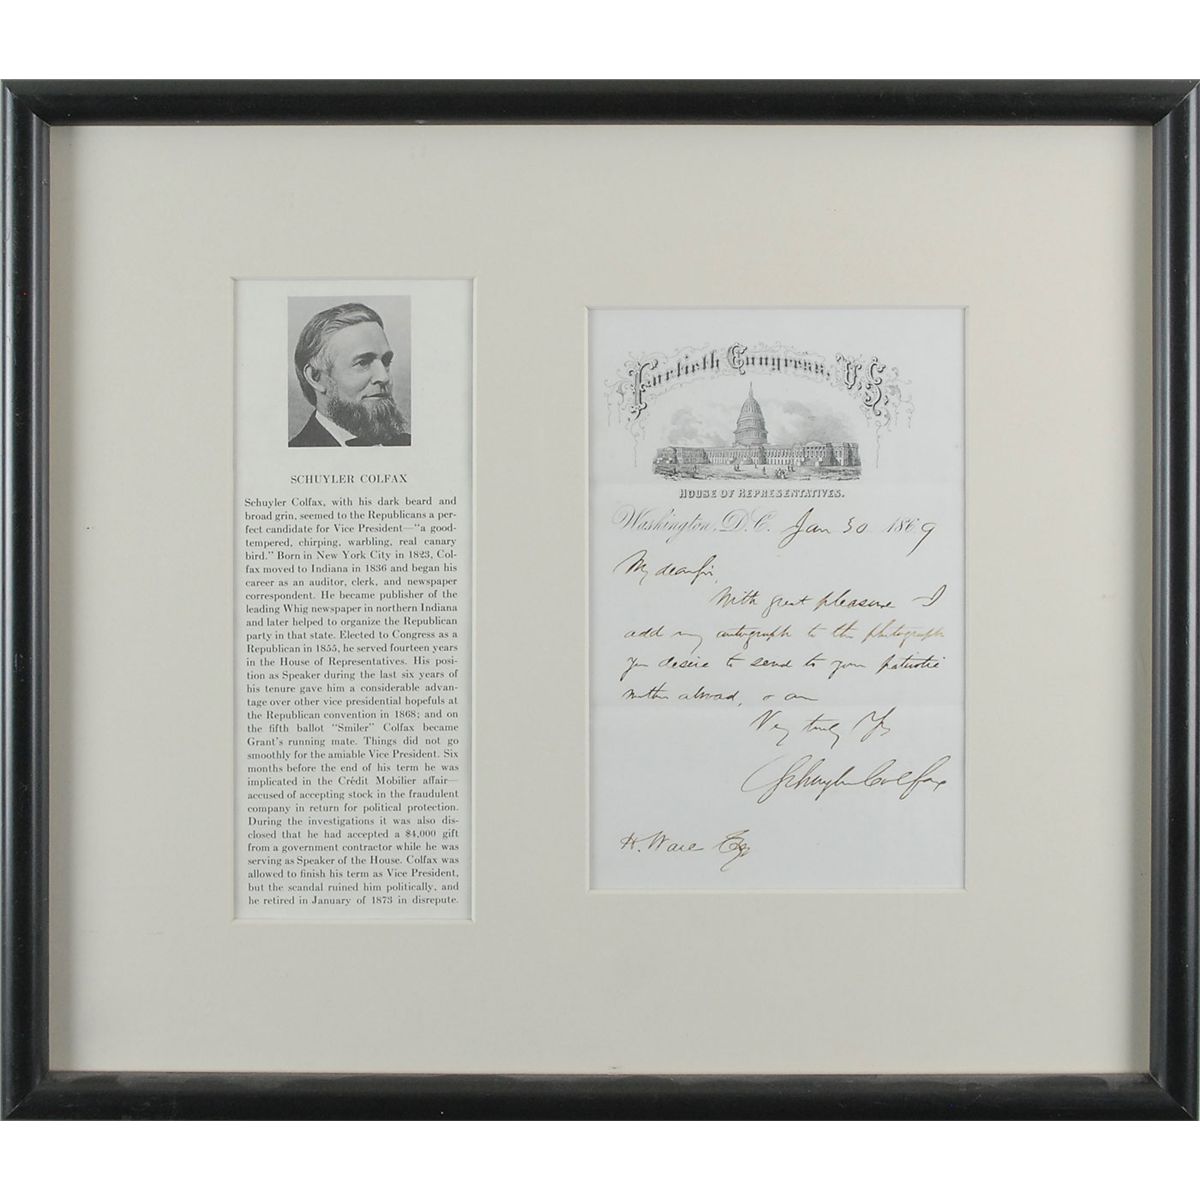 SCHUYLER COLFAX
Schuyler Colfax, with his dark beard and
broad grin, seemed to the Republicans a per-
fect candidate for Vice President—"a good-
tempered, chirping, warbling, real canary
bird." Born in New York City in 1823, Col-
fax moved to Indiana in 1836 and began his
career as an auditor, clerk, and newspaper
correspondent. He became publisher of the
leading Whig newspaper in northern Indiana
and later helped to organize the Republican
party in that state. Elected to Congress as a
Republican in 1855, he served fourteen years
in the House of Representatives. His posi-
tion as Speaker during the last six years of
his tenure gave him a considerable advan-
tage over other vice presidential hopefuls at
the Republican convention in 1868; and on
the fifth ballot "Smiler" Colfax became
Grant's running mate. Things did not go
smoothly for the amiable Vice President. Six
months before the end of his term he was
implicated in the Crédit Mobilier affair—
accused of accepting stock in the fraudulent
company in return for political protection.
During the investigations it was also dis-
closed that he had accepted a $4,000 gift
from a government contractor while he was
serving as Speaker of the House. Colfax was
allowed to finish his term as Vice President,
but the scandal ruined him politically, and
he retired in January of 1873 in disrepute.
Fortieth Congress, U.S.
HOUSE OF REPRESENTATIVES.
Washington, D.C. Jan 30 1869
My dear Sir,
With great pleasure I
add my autograph to the photograph
you desire to send to your patriotic
mother abroad, & am
Very truly Yrs
Schuyler Colfax
H. Ware Esq